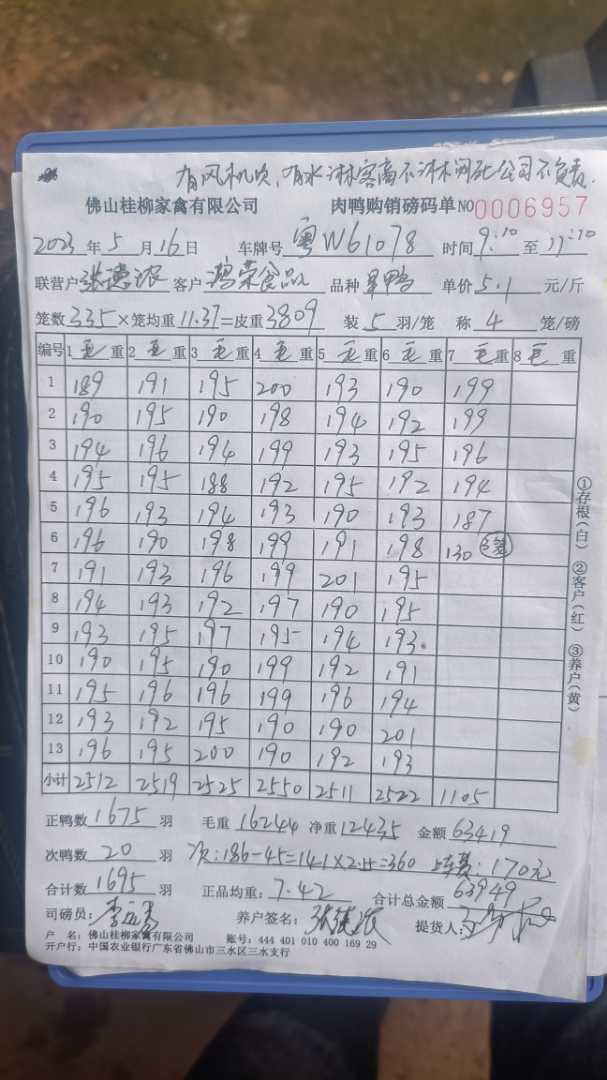 有风机吹,有水淋客商不淋水闷死公司不负责.
佛山桂柳家禽有限公司 肉鸭购销磅码单 NO 0006957
2023年5月16日 车牌号 粤W61078 时间 9:10 至 11:10
联营户 张德浓 客户 鸿荣食品 品种 鸭 单价 5.1 元/斤
笼数 335 ×笼均重 11.37 =皮重 3809 装 5 羽/笼 称 4 笼/磅
编号 1 毛 重 2 毛 重 3 毛 重 4 毛 重 5 毛 重 6 毛 重 7 毛 重 8 毛 重
1 189 191 195 200 193 190 199
2 190 195 190 198 194 192 199
3 194 196 194 199 193 195 196
4 195 195 188 192 195 192 194
5 196 193 194 193 190 193 187
6 196 190 198 199 191 198 130
7 191 193 196 199 201 195
8 194 193 192 197 190 195
9 193 195 197 195 194 193
10 190 195 190 199 192 191
11 195 196 196 199 196 194
12 193 192 195 190 190 201
13 196 195 200 190 192 193
小计 2512 2519 2525 2550 2511 2522 1105
正鸭数 1675 羽 毛重 16244 净重 12435 金额 63419
次鸭数 20 羽 次:186-45=141×2.55=360 上车费:170元
合计数 1695 羽 正品均重: 7.42 合计总金额 63949
司磅员: 养户签名: 张德浓 提货人:
户 名:佛山桂柳家禽有限公司 账号:444 401 010 400 169 29
开户行:中国农业银行广东省佛山市三水区三水支行
①存根(白) ②客户(红) ③养户(黄)